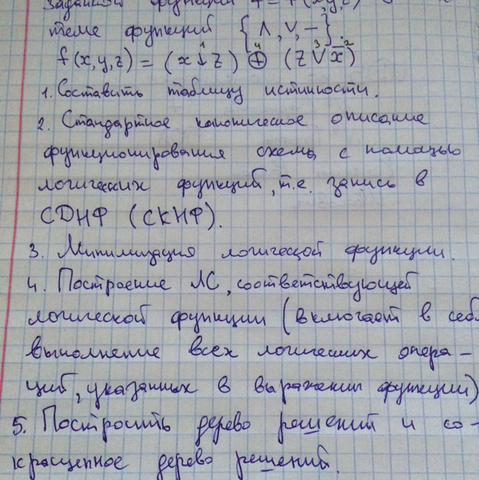 заданной функции f = f(x,y,z) в
теме функций {∧, ∨, −}
f(x,y,z) = (x ↓ z) ⊕ (z ∨ x̅)
1. Составить таблицу истинности.
2. Стандартное каноническое описание
функционирования схемы с помощью
логических функций, т.е. запись в
СДНФ (СКНФ).
3. Минимизация логической функции.
4. Построение ЛС, соответствующей
логической функции (включает в себ
выполнение всех логических опера-
ций, указанных в выражении функции)
5. Построить дерево решений и со-
кращенное дерево решений.